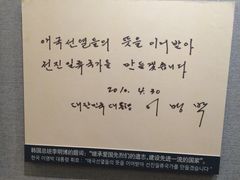 애국선열들의 뜻을 이어받아
선진일류국가를 만들겠습니다
2010. 4. 30
대한민국 대통령 이명박
韩国总统李明博的题词："继承爱国先烈们的遗志,建设先进一流的国家"。
한국 이명박 대통령 휘호: "애국선열들의 뜻을 이어받아 선진일류국가를 만들겠습니다"